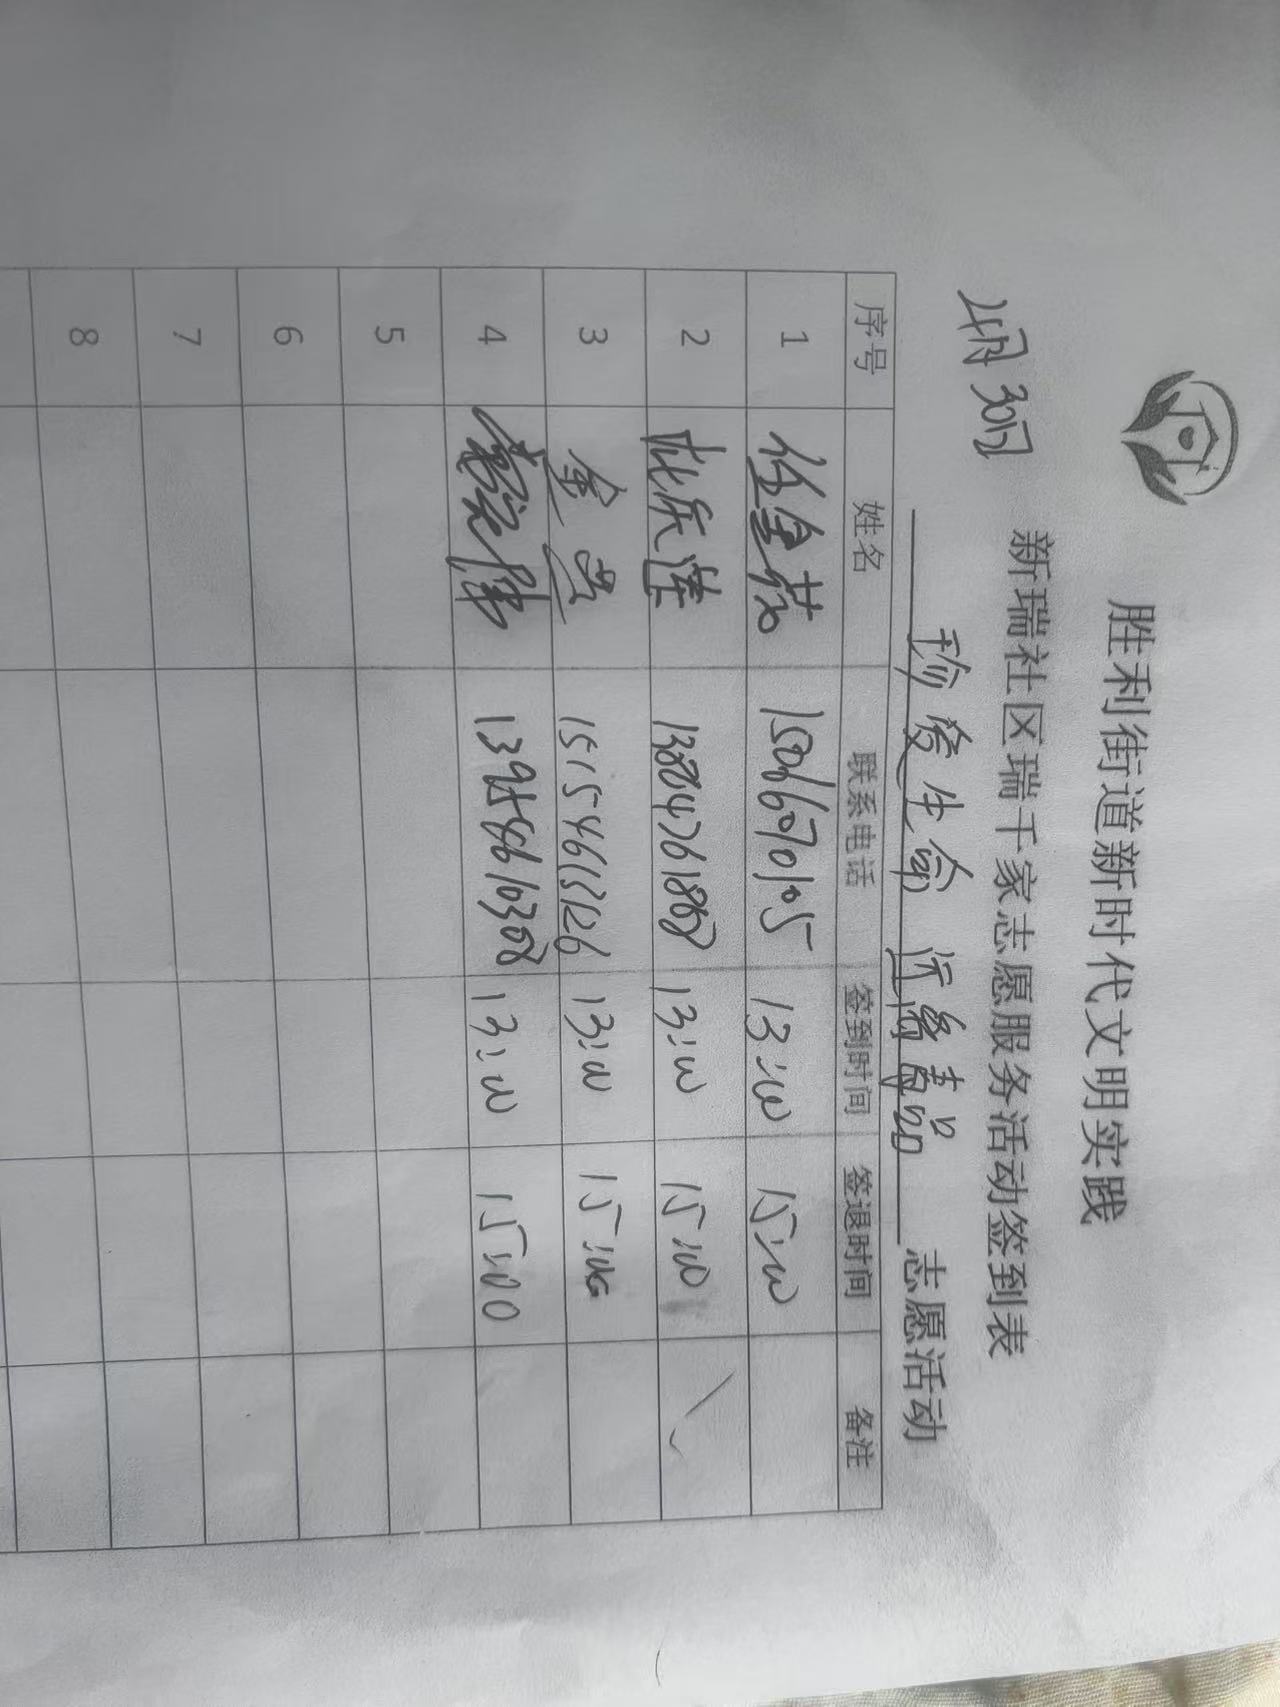 胜利街道新时代文明实践
新瑞社区瑞千家志愿服务活动签到表
4月30日
珍爱生命 远离毒品 志愿活动
序号 姓名 联系电话 签到时间 签退时间 备注
1 任金苑 15066070105 13:00 15:00
2 13:00 15:00
3 金兰 15154613126 13:00 15:00
4 13958610368 13:00 15:00
5
6
7
8